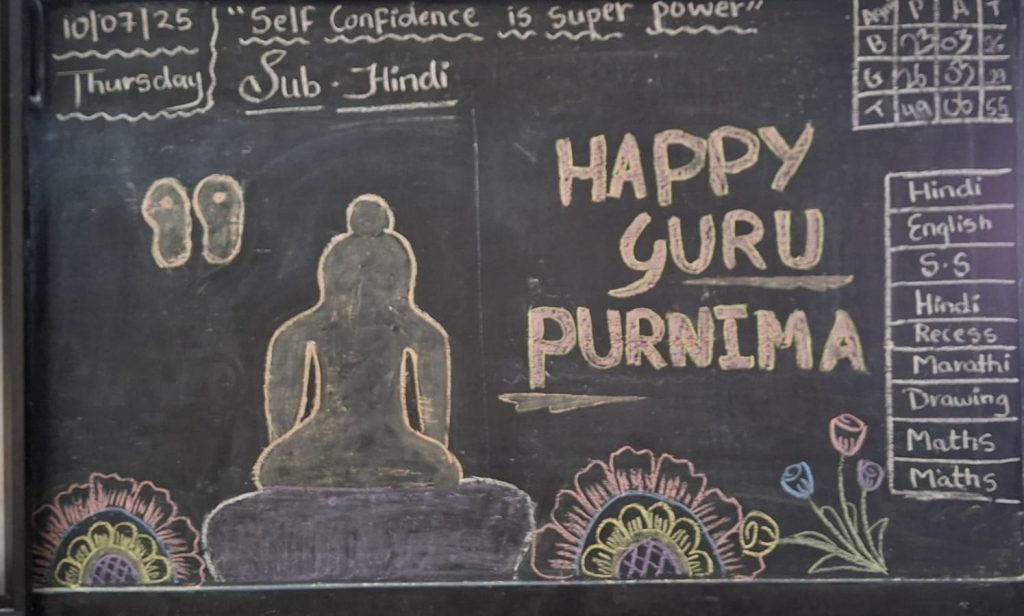 10/07/25
Thursday
"Self Confidence is super power"
Sub. Hindi
App P A T
B 23 03 26
G 26 03 29
T 49 06 55
HAPPY
GURU
PURNIMA
Hindi
English
S.S
Hindi
Recess
Marathi
Drawing
Maths
Maths